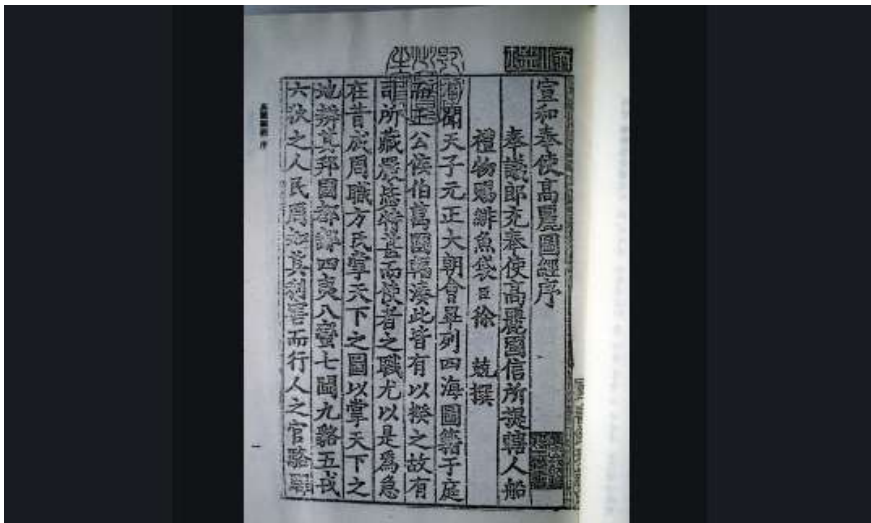 宣和奉使高麗圖經序
奉議郎充奉使高麗國信所提轄人船
禮物賜緋魚袋臣徐兢撰
聞天子元正大朝會畢列四海圖籍于庭
而王公侯伯萬國輻湊此皆有以揆之故有
司所藏嚴毖特甚而使者之職尤以是爲急
在昔成周職方氏掌天下之圖以掌天下之
地辨其邦國都鄙四夷八蠻七閩九貉五戎
六狄之人民周知其利害而行人之官駱驛
高麗圖經 序
一